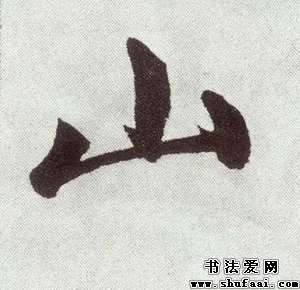 山
书法爱网
www.shufaai.com